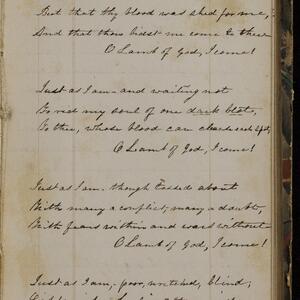 But that thy blood was shed for me,
And that thou bidst me come to thee
O Lamb of God, I come!
Just as I am - and waiting not
To rid my soul of one dark blot,
To thee, whose blood can cleanse each spot,
O Lamb of God, I come!
Just as I am - though tossed about
With many a conflict, many a doubt,
With fears within and wars without
O Lamb of God, I come!
Just as I am, - poor, wretched, blind,